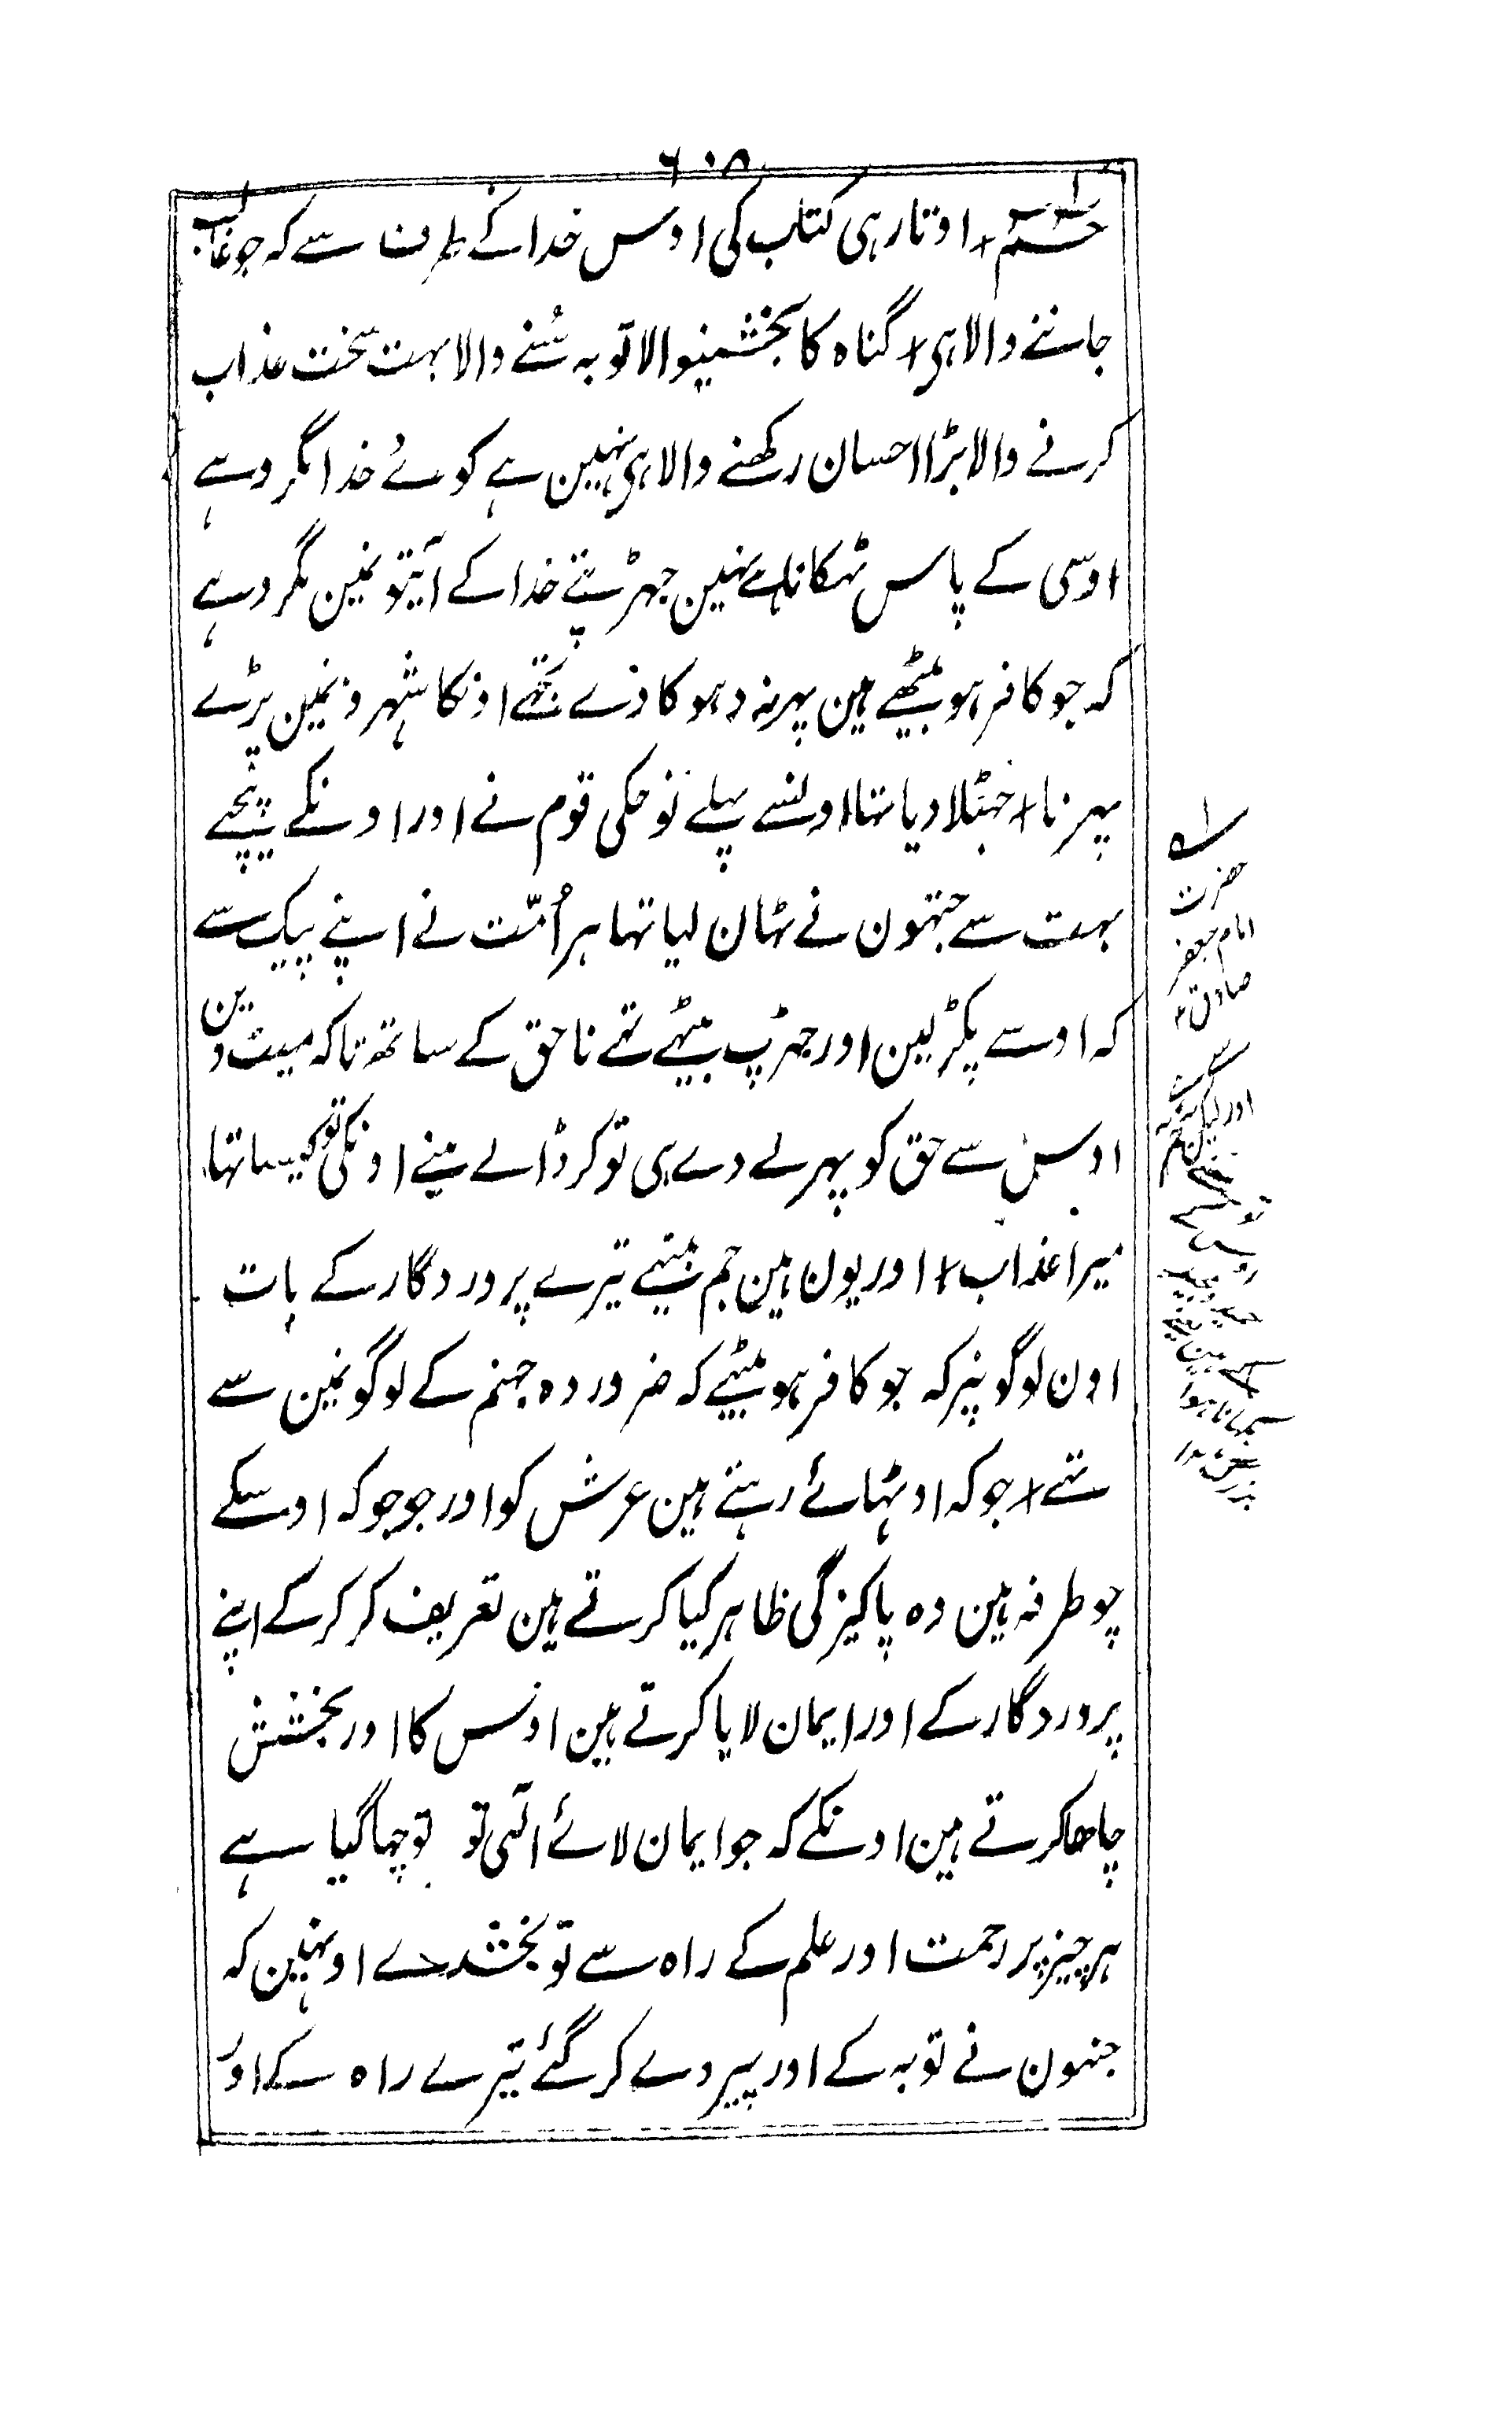 ۶۰۸
حٰم + اوتار ہی کتاب کی اوس خدا کے طرف سے کہ جو غالب
جاننے والا ہی + گناہ کا بخشنیوالا توبہ سُننے والا بہت سخت عذاب
کرنے والا بڑا احسان رکھنے والا ہی نہین ہے کوئے خدا مگر وہے
اوسی کے پاس ٹہکانا ہے نہین جہڑپتے خدا کے آیتونمین مگر وہے
کہ جو کافر ہو بیٹھے ہین پہر نہ دہوکا دے تجھے اونکا شہرونمین پڑے
پہرنا + جہٹلا دیا تہا اونسے پہلے نوحکی قوم نے اور اونکے پیچھے
بہت سے جتہون نے ٹہان لیا تہا ہر اُمّت نے اپنے پیک سے
کہ اوسے پکڑ لین اور جہڑپ بیٹھے تھے ناحق کے ساتھ تاکہ میٹ دین
اوس سے حق کو پہر لے دے ہی تو کر ڈالے مینے اونکی تو کیسا تہا
میرا عذاب + اور یون ہین جم بیٹھے تیرے پروردگار کے بات
اون لوگونپر کہ جو کافر ہو بیٹھے کہ ضرور وہ جہنم کے لوگونمین سے
تہے + جو کہ اوٹہائے رہتے ہین عرش کو اور جو جو کہ اوسکے
چوطرفہ ہین وہ پاکیزگی ظاہر کیا کرتے ہین تعریف کر کر کے اپنے
پروردگار کے اور ایمان لایا کرتے ہین اوس کا اور بخشش
چاہا کرتے ہین اونکے کہ جو ایمان لائے الٰہی تو تو چہا گیا ہے
ہر چیز پر رحمت اور علم کے راہ سے تو بخشدے اونہین کہ
جنہون نے توبہ کے اور پیروے کر گئے تیرے راہ کے اور
حضرت
امام جعفر
صادق ع
سے